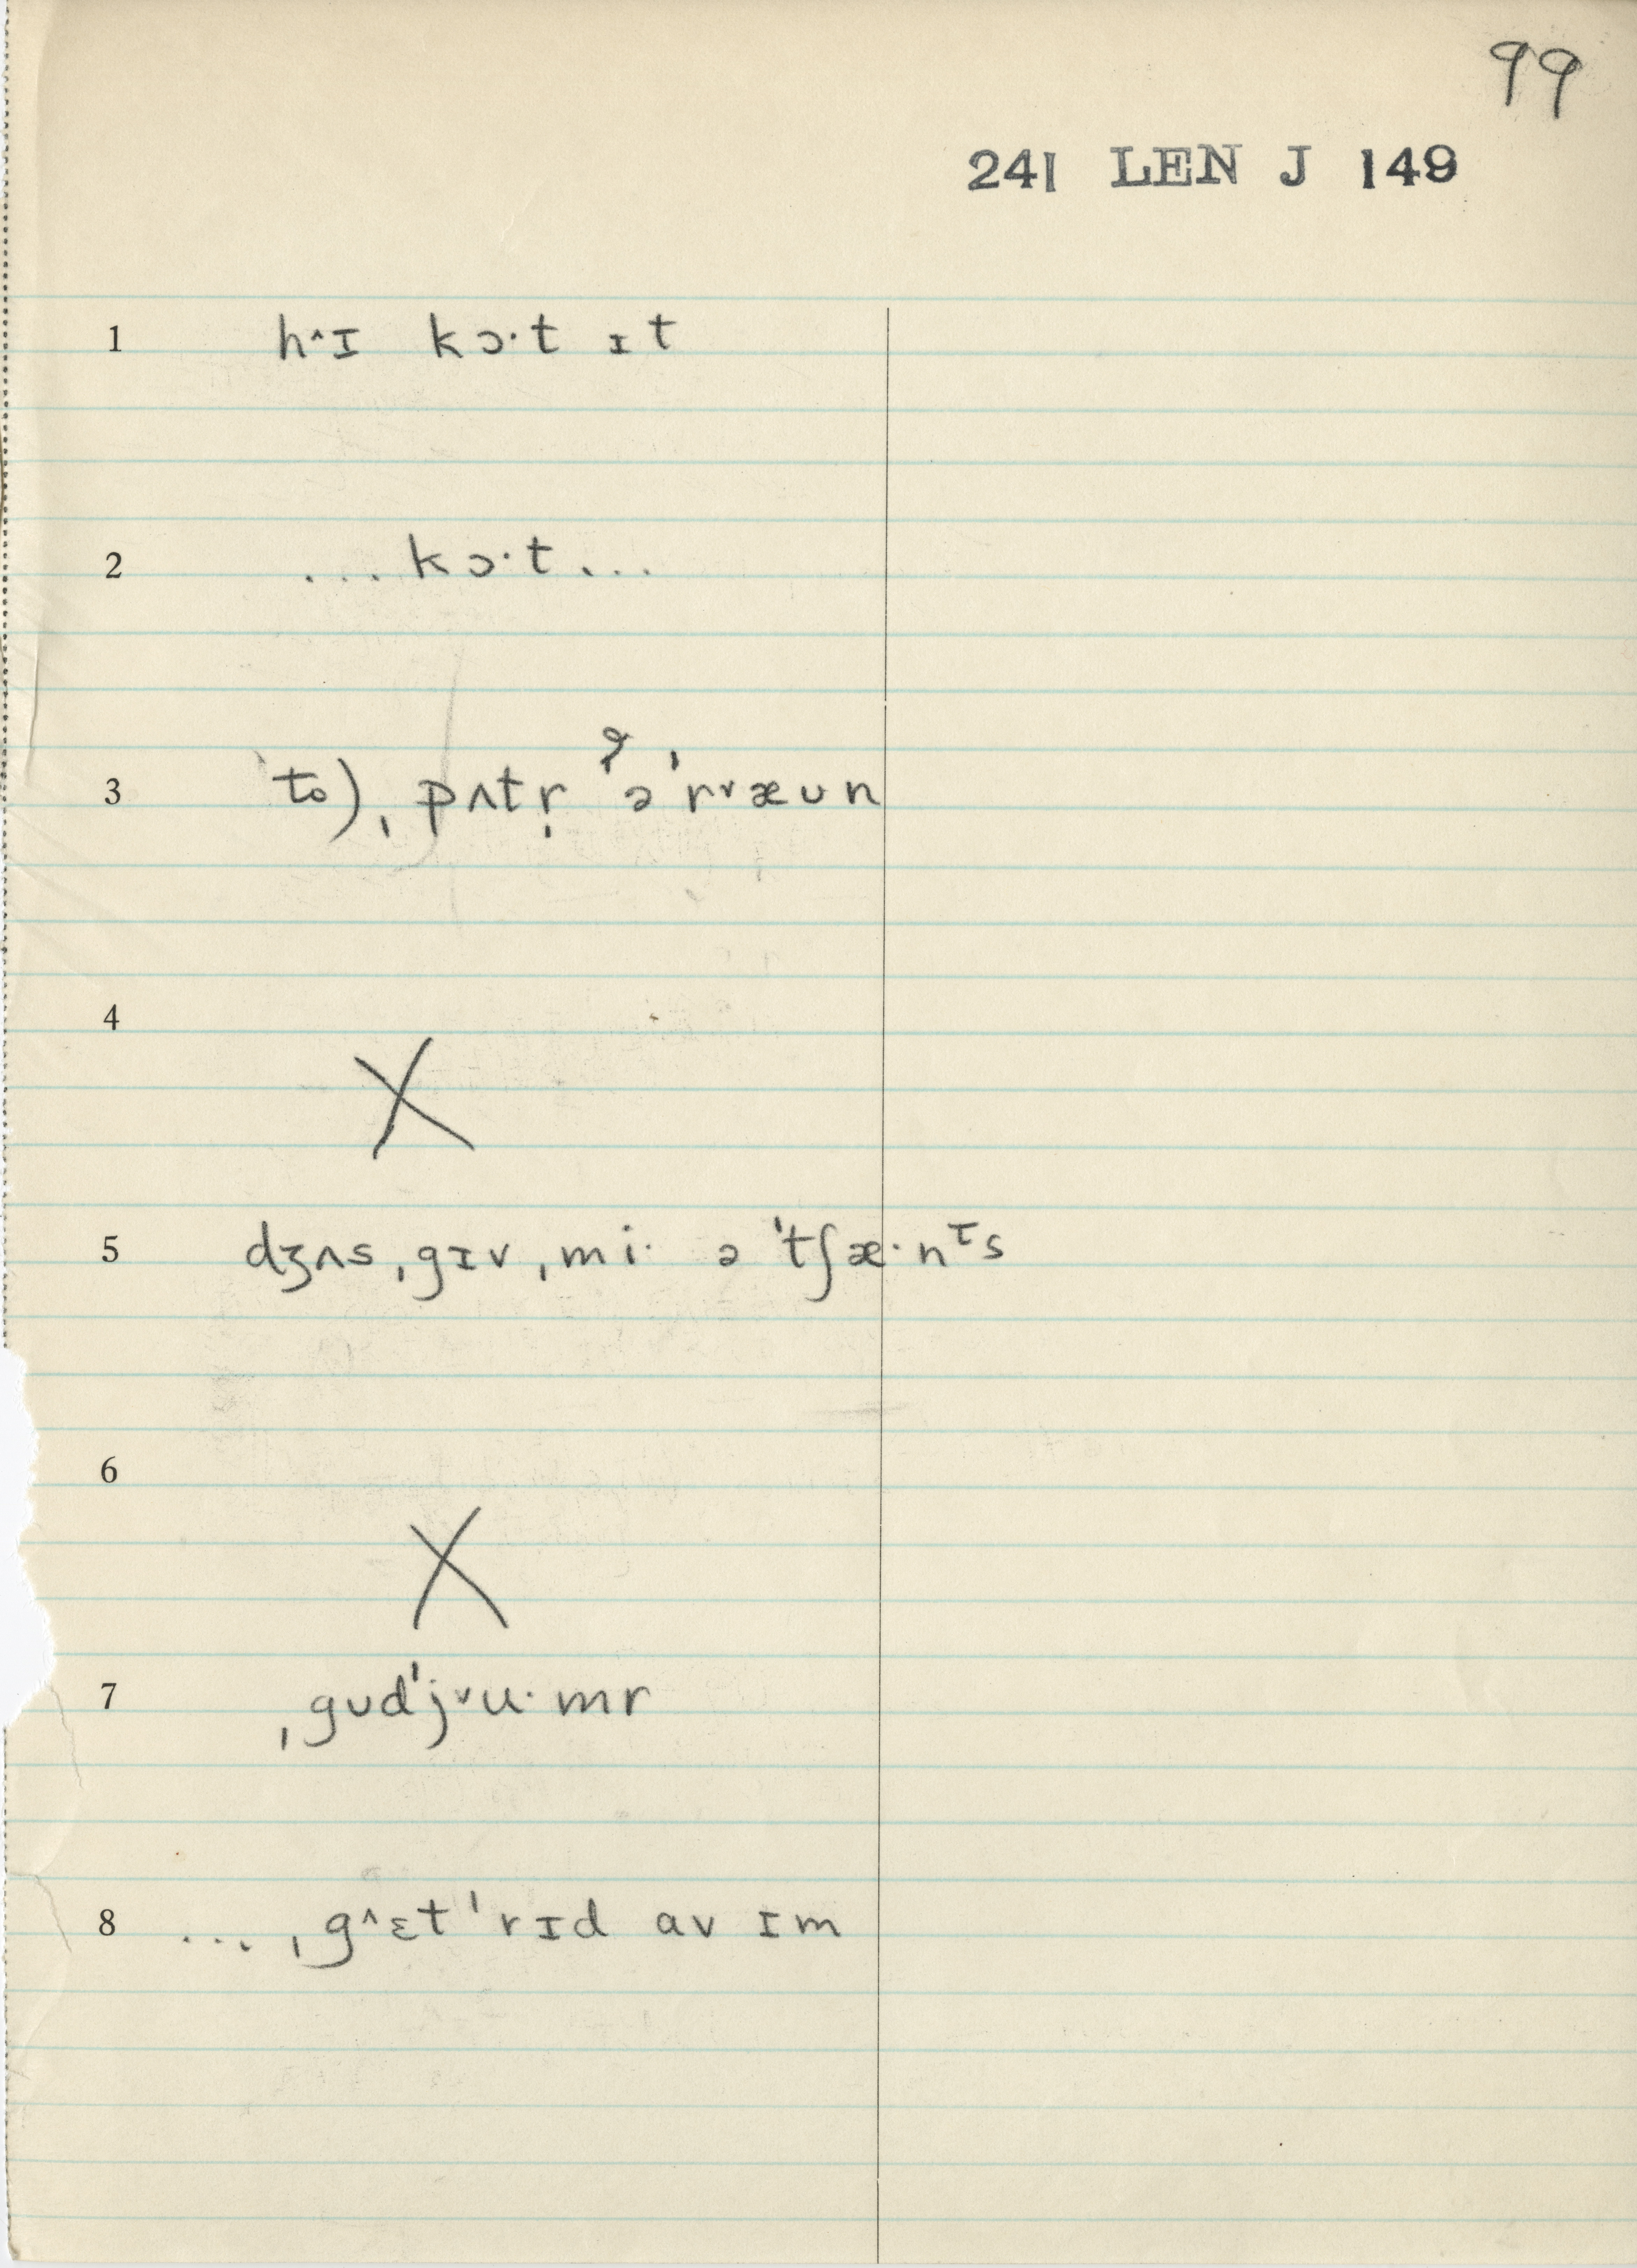 99
241 LEN J 149
1 h˄ɪ kɔ·t ɪt
2 ...kɔ·t...
3 'to) ˌpʌtr̩ ə'r˅æʊn
4 X
5 dʒʌs ˌgɪv ˌmi· ə 'tʃæ·nᵗs
6 X
7 ˌgʊd'j˅u·mr
8 ... ˌg˄ɛt 'rɪd av ɪm